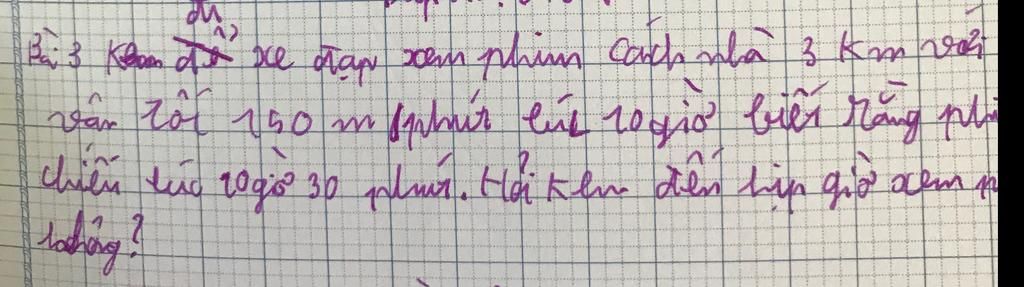 Bài 3 Ken đi xe đạp xem phim cách nhà 3 km với
vận tốc 150 m/phút lúc 10 giờ biết rằng phi
chiếu lúc 10 giờ 30 phút. Hỏi Ken đến kịp giờ xem p
không?